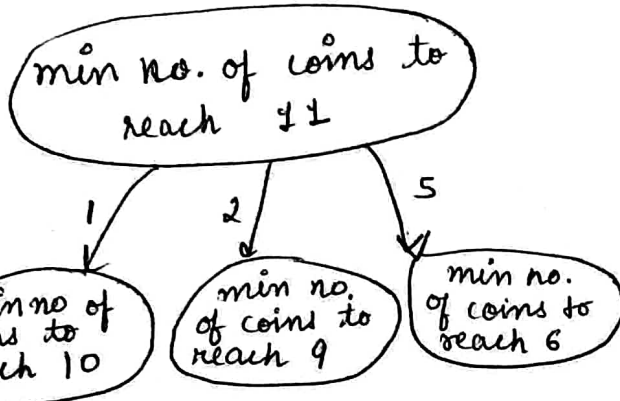 min no. of coins to
reach 11
1
2
5
no of
to
10
min no.
of coins to
reach 9
min no.
of coins to
reach 6